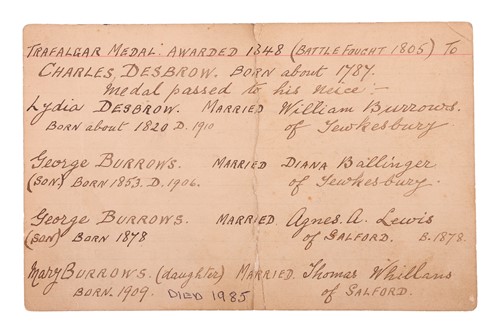 TRAFALGAR MEDAL: AWARDED 1848 (BATTLE FOUGHT 1805) TO
CHARLES DESBROW. BORN about 1787.
Medal passed to his neice:-
Lydia DESBROW. MARRIED William Burrows.
BORN about 1820 D. 1910 of Tewkesbury
George BURROWS. MARRIED DIANA Ballinger
(SON) BORN 1853. D. 1906. of Tewkesbury.
George BURROWS. MARRIED. Agnes. A. Lewis
(SON) BORN 1878 of SALFORD. B. 1878.
Mary BURROWS. (daughter) MARRIED. Thomas Whillans
BORN. 1909. DIED 1985 of SALFORD.